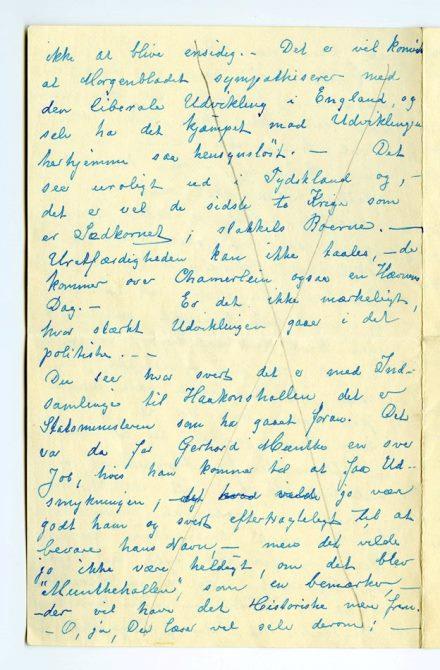 ikke at blive ensidig. - Det er vel
at Morgenbladet sympathiserer med
den liberale Udvikling i England, og
selv ha det kjæmpet mod Udviklingen
herhjemme saa hensynsløst. - Det
ser uroligt ud i Tydskland og, -
det er vel de sidste to Krige som
er Sædkornet; stakkels Boerne. -
Uretfærdigheden kan ikke taales, - de
kommer over Chamerlein ogsaa en Hævnens
Dag. - Er det ikke mærkeligt,
hvor stærkt Udviklingen gaar i det
politiske. - -
Du seer hvor svert det er med Ind-
samlinge til Haakonshallen det er
Statsministeren som ha gaaet foran. Det
var da for Gerhard Munthe en svær
Job, hvis han kommer til at faa Ud-
smykningen; jo vær
godt ham og svert eftertragteligt til at
bevare hans Navn, - men det vilde
jo ikke være heldigt, om det blev
"Munthehallen", som en bemærker, -
- der vil have det Historiske
- O, ja, Du læser vel selv derom; -